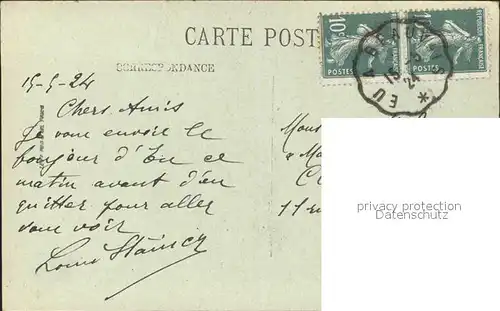 CARTE POST
CORRESPONDANCE
10c
POSTES
RÉPUBLIQUE
FRANÇAISE
POSTES
EU A BEAUV
15
24
15-5-24
Chers Amis
Je vous envoie le
bonjour d'Eu ce
matin avant d'en
quitter pour aller
vous voir
Louis
Mous
& Ma
C
11
privacy protection
Datenschutz